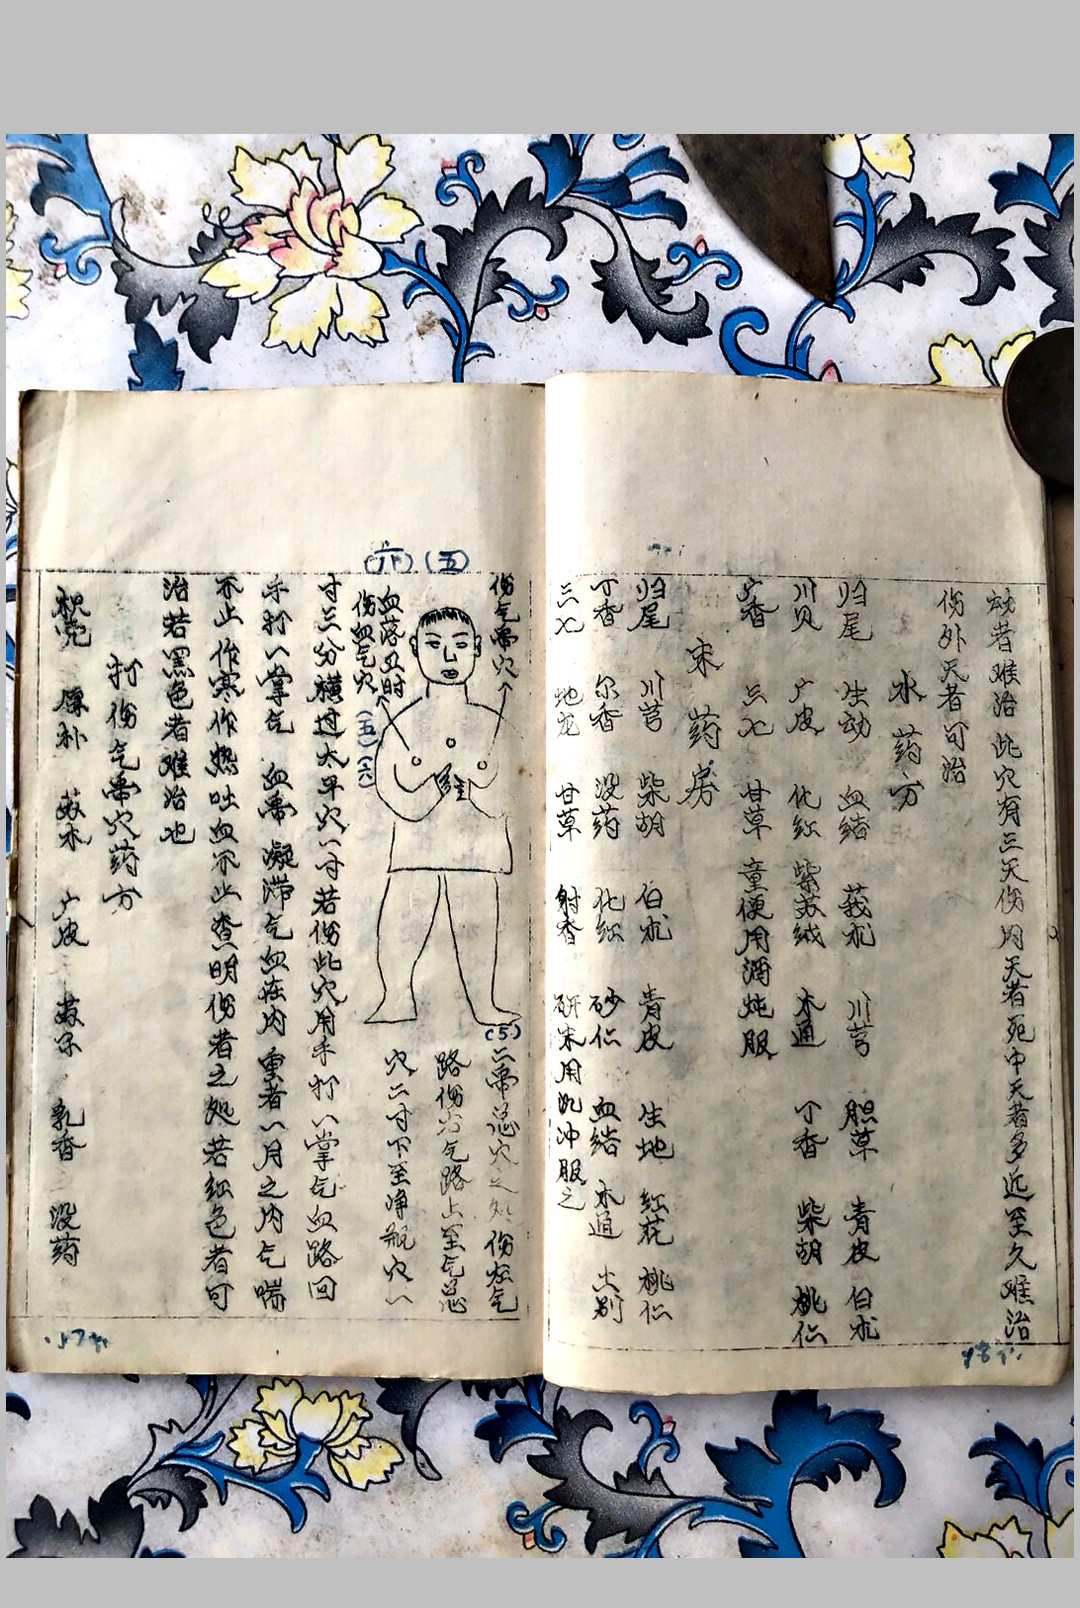 动者难治此穴有三天伤内天者死中天者多近至久难治
伤外天者可治
水药方
归尾 生动 血结 莪朮 川芎 胆草 青皮 白朮
川贝 广皮 化红 紫苏绒 木通 丁香 柴胡 桃仁
广香 三七 甘草 童便用酒炖服
末药房
归尾 川芎 柴胡 白朮 青皮 生地 红花 桃仁
丁香 尔香 没药 化红 砂仁 血结 木通 土别
三七 地龙 甘草 射香 研末用此冲服之
(五)
(六)
伤气带穴
血落丑时
伤血气穴
(五)(六)
(5)二带总穴之处伤右气
路伤 气路上至气总
穴二寸下至净瓶穴一
寸三分横过太阜穴一寸若伤此穴用手打一掌气血路回
手打一掌气 血带 凝滞气血在内重者一月之内气喘
不止作寒作热吐血不止查明伤者之处若红色者可
治若黑色者难治也
打伤气带穴药方
枳壳 厚朴 苏木 广皮 苏子 乳香 没药